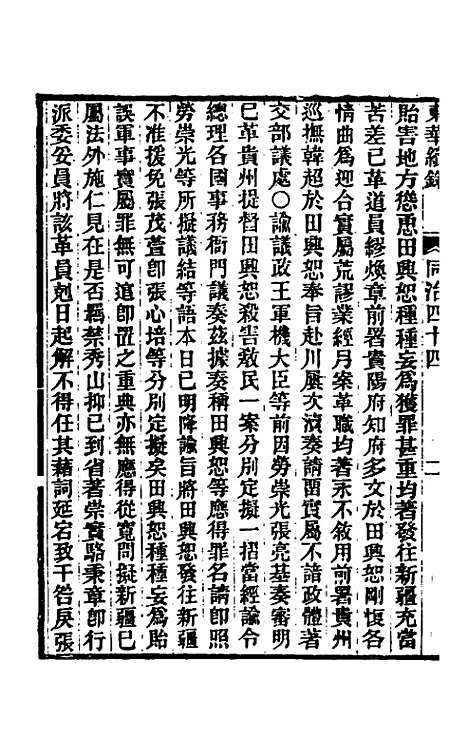 東華續錄
同治四十四
貽害地方慫恿田興恕種種妄爲獲罪甚重均著發往新疆充當
苦差已革道員繆煥章前署貴陽府知府多文於田興恕剛愎各
情曲爲迎合實屬荒謬業經月案革職均著永不敘用前署貴州
巡撫韓超於田興恕奉旨赴川屢次瀆奏請畱實屬不諳政體著
交部議處〇諭議政王軍機大臣等前因勞崇光張亮基奏審明
已革貴州提督田興恕殺害敎民一案分別定擬一摺當經諭令
總理各國事務衙門議奏茲據奏稱田興恕等應得罪名請卽照
勞崇光等所擬議結等語本日已明降諭旨將田興恕發往新疆
不准援免張茂萱卽張心培等分別定擬矣田興恕種種妄爲貽
誤軍事實屬罪無可逭卽置之重典亦無應得從寬問擬新疆已
屬法外施仁見在是否羈禁秀山抑已到省著崇實駱秉章卽行
派委妥員將該革員剋日起解不得任其藉詞延宕致干咎戾張